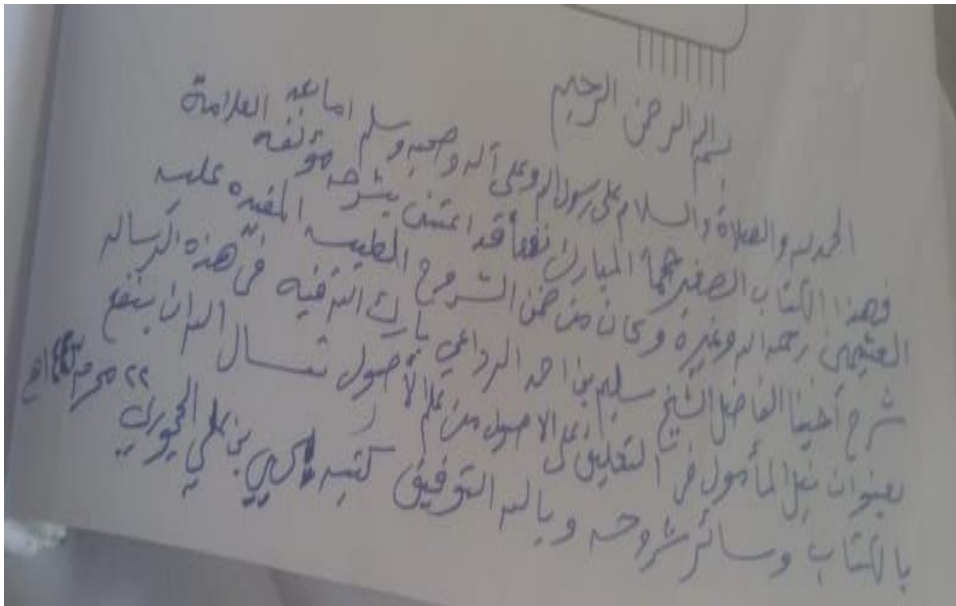 بسم الله الرحمن الرحيم
الحمد لله والصلاة والسلام على رسول الله وعلى آله وصحبه وسلم اما بعد
فهذا الكتاب الصغير حجما المبارك نفعا قد اعتنى بشرحه مؤلفه العلامة
العثيمين رحمه الله وغيره وكان من ضمن الشروح الطيبة المفيدة عليه
شرح أخينا الفاضل الشيخ سليم بن احمد الرداعي بارك الله فيه في هذه الرسالة
بعنوان نيل المأمول في التعليق على الاصول من علم الأصول نسال الله ان ينفع
بالكتاب وسائر شروحه وبالله التوفيق كتبه يحيى بن علي الحجوري ٢٢ محرم